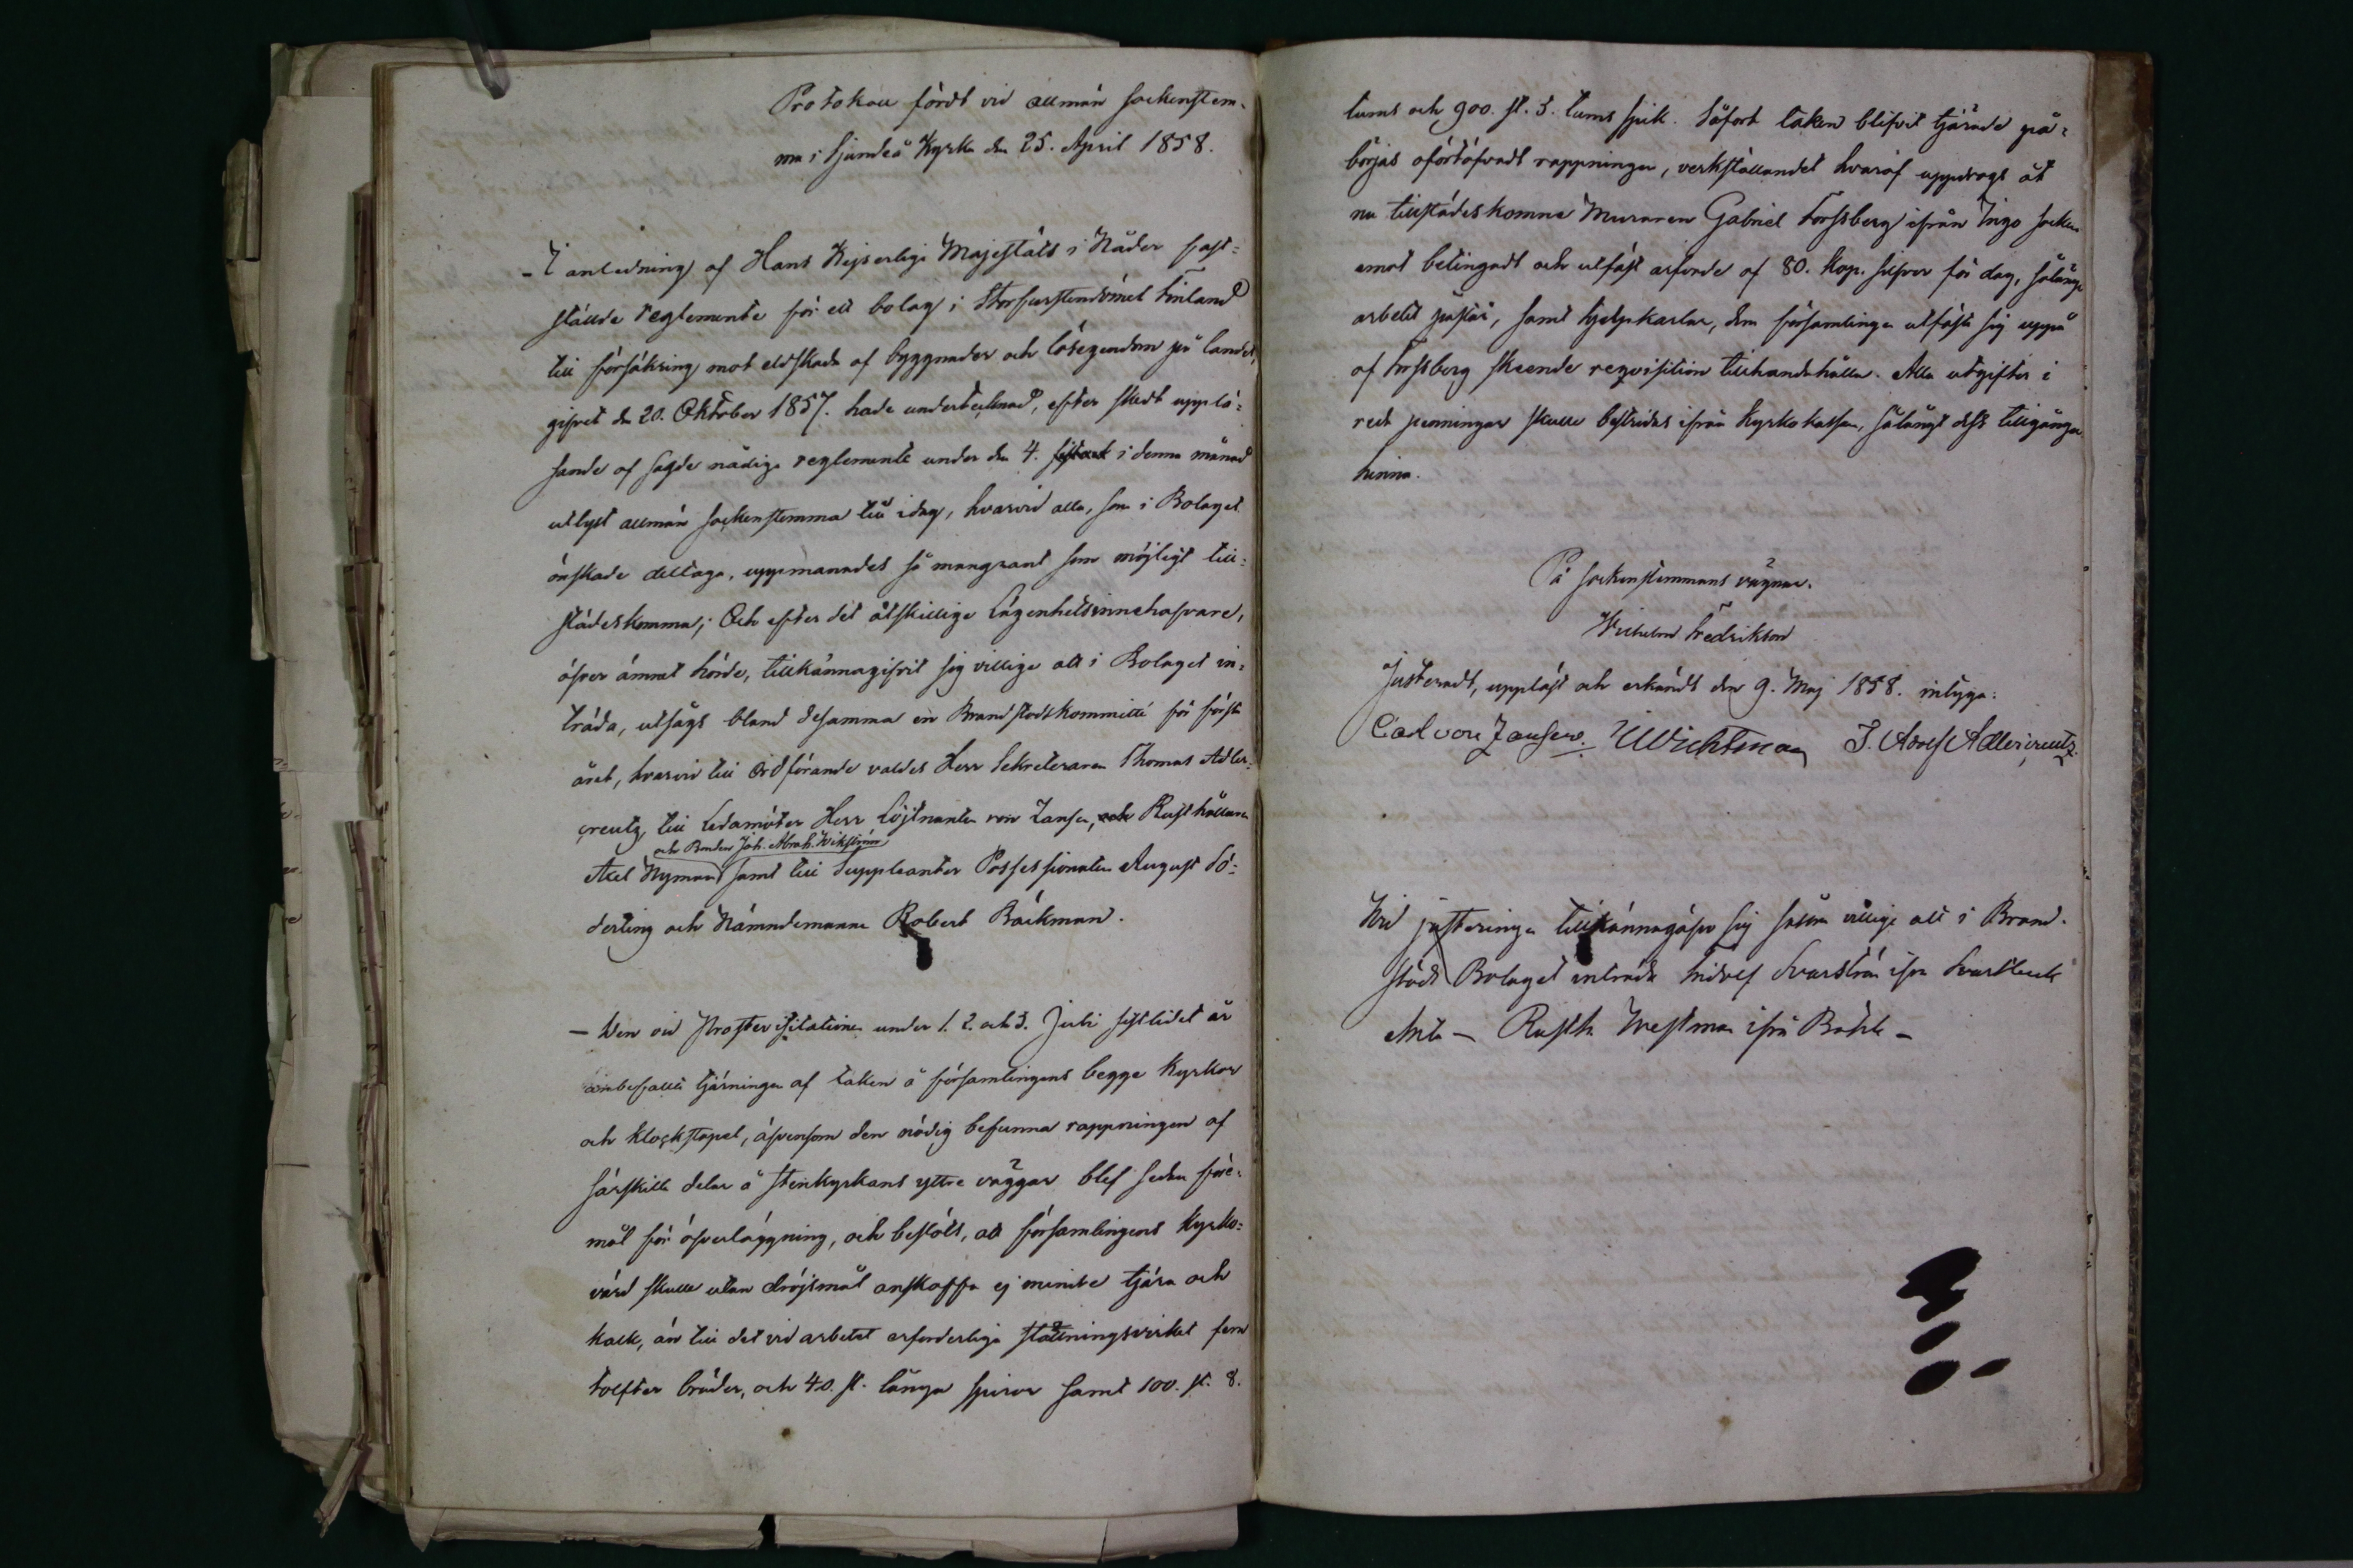 Protokoll fördt vid allmän sockenstem-
ma i Sjundeå Kyrka den 25. April 1858.
- I anledning af Hans Kejserliga Majestäts i Nåder fast=
stállde reglemente för ett bolag i Storfurstendömet Finland
till försäkring mot eldskada af byggnader och lösegendom på landet,
gifvet den 20. Oktober 1857. hade undertecknad, efter skedt upplä=
sande af sagde nådiga reglemente under den 4. sistavek i denna månad
utlyst allmän sockenstemma till idag, hvarvid alla, som i Bolaget
önskade deltaga, uppmanades så mangrant som möjligt till=
städeskomma; Och efter det åtskillige Lägenhetsinnehafvare,
öfver ämnet hörde, tillkännagifvit sig villige att i Bolaget in=
träda, utsågs bland desamma en Brandstodskommitté för första
året, hvarvid till Ordförande valdes Herr Sekreteraren Thomas Adler=
creutz, till Ledamöter Herr Löjtnanten von Zansen, och Rusthållaren
och Bonden Joh. Abrah. Wikström
Axel Nyman samt till Suppleanter Possessionaten August Sö=
derling och Nämndemannen Robert Bäckman.
- Den vid Prostevisitationen under 1. 2. och 3. Juli sistlidet år
anbefallta tjärningen af taken å församlingens begge Kyrkor
och klockstapel, äfvensom den nödig befunna rappningen af
särskilta delar å stenkyrkans yttre väggar blef sedan före=
mål för öfverläggning, och beslöts, att församlingens Kyrko=
värd skulle utan dröjsmål anskaffa ej mindre tjära och
kalk, än till det vid arbetet erforderliga ställningsvirket fem
tolfter bräder, och 40. st. långa spiror samt 100. st. 8.
tums och 900. st. 3. tums spik. Såfort taken blifvit tjärade på=
börjas oförtöfvadt rappningen, verkställandet hvaraf uppdrogs åt
nu tillstädeskomne Muraren Gabriel Forssberg ifrån Ingo socken
emot betingadt och utfäst arfvode af 80. Kop. silfver för dag, sålänge
arbetet påstår, samt hjelpkarlar, dem församlingen utfäste sig uppå
af Forssberg skeende reqvisition tillhandahålla. Alla utgifter i
reda penningar skulle bestridas ifrån Kyrkokassan, sålångt dess tillgångar
hinna.
På sockenstemmans vägnar.
Wilhelm Fredrikson
Justeradt, uppläst och erkändt den 9. Maj 1858. intyga:
Carl von Zansen. Wichtman J. Adolf Adlercreutz.
Vid justeringen tillkännagåfvo sig vara villige att i Brand-
stods Bolaget inträda Svarström ifrån Svartbeck
- Rusth. Westman ifrån Bocks -